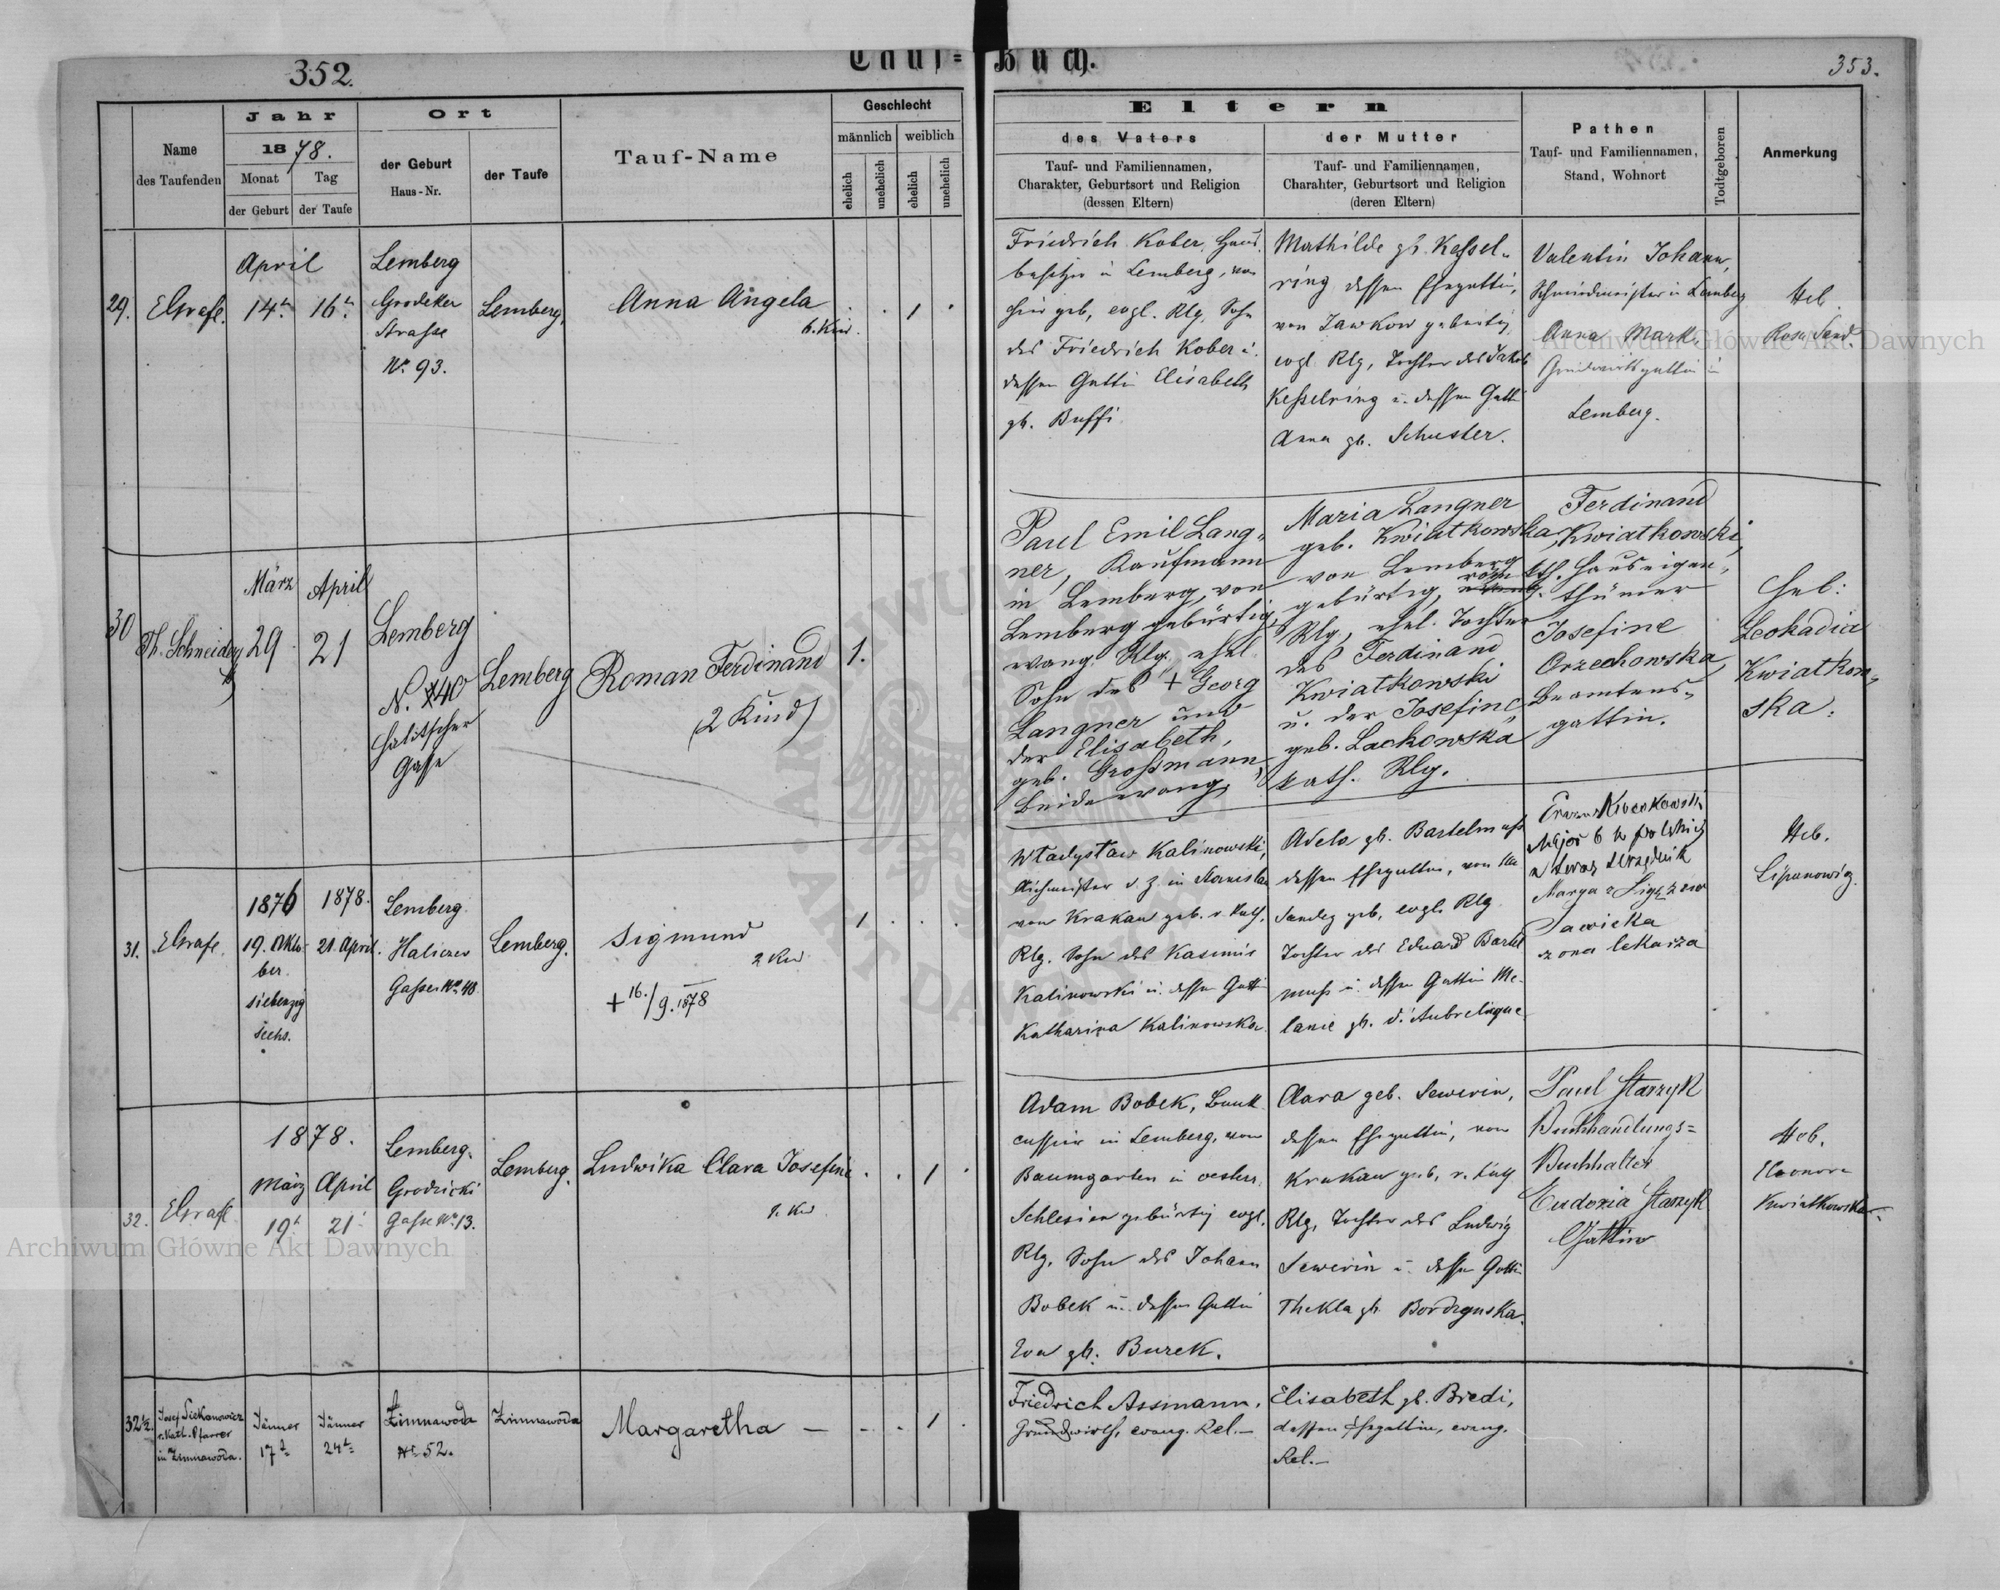 352.
Tauf=
Buch.
353.
Name
des Taufenden
Jahr
1878.
Monat
der Geburt
Tag
der Taufe
Ort
der Geburt
Haus-Nr.
der Taufe
Tauf-Name
Geschlecht
männlich
weiblich
ehelich
unehelich
ehelich
unehelich
Eltern
des Vaters
Tauf- und Familiennamen,
Charakter, Geburtsort und Religion
(dessen Eltern)
der Mutter
Tauf- und Familiennamen,
Charahter, Geburtsort und Religion
(deren Eltern)
Pathen
Tauf- und Familiennamen,
Stand, Wohnort
Todtgeboren
Anmerkung
29.
April
14.
16.
Lemberg
Grodeker
Strasse
Nr. 93.
Lemberg.
Anna Angela
6. Kind.
1
Friedrich Kober, Haus
besitzer in Lemberg, von
hier geb, evgl. Rlg, Sohn
des Friedrich Kober u.
dessen Gattin Elisabeth
gb. Buffi.
Mathilde gb. Kessel-
ring dessen Ehegattin,
von
evgl. Rlg, Tochter des Jakob
Kesselring u. dessen Gatti
Anna gb. Schuster.
Valentin Johann,
Schmiedmeister in Lemberg
Anna
Grundwirthsgattin in
Lemberg.
Heb.
Rosa
30
Th. Schneider
März
29
April
21
Lemberg
N. 40
Halitscher
Gasse
Lemberg
Roman Ferdinand
(2 Kind)
1.
Paul Emil Lang-
ner, Kaufmann
in Lemberg, von
Lemberg gebürtig,
evang. Rlg. ehel.
Sohn des + Georg
Langner und
der Elisabeth,
geb. Großmann
beide evang.
Maria Langner
geb. Kwiatkowska,
von Lemberg
gebürtig, röm. kth.
Rlg, ehel. Tochter
des Ferdinand
Kwiatkowski
u. der Josefine,
geb. Lachowska
kath. Rlg.
Ferdinand
Kwiatkowski,
Hauseigen-
thümer
Josefine
Orzechowska,
Beamtens-
gattin.
Heb:
Leokadia
Kwiatkow-
ska.
31.
1876
19. Okto-
ber.
siebenzig
sechs.
1878.
21. April.
Lemberg.
Haliczer
Gasse Nr. 40
Lemberg.
Sigmund
2 Kin
+ 16./9. 1878
1
Władysław Kalinowski,
von Krakau geb. r. kath.
Rlg. Sohn des Kasimir
Kalinowski u. dessen Gatti
Katharina Kalinowska.
Adela gb. Bartelmuss
dessen Ehegattin, von
Sandez geb, evgl. Rlg
Tochter des Eduard Bartel
muss u. dessen Gattin Me-
lanie gb. d'Aubrelique.
Major b w polskich
a teraz urzędnik
Sawicka
żona lekarza
Heb.
32.
1878.
März
19.
April
21.
Lemberg.
Grodzicki
Gasse Nr. 13.
Lemberg.
Ludwika Clara Josefine
1. Kin
1
Adam Bobek, Bank
cassier in Lemberg, von
Baumgarten in oesterr.
Schlesien gebürtig evgl.
Rlg. Sohn des Johann
Bobek u. dessen Gattin
Eva gb. Burek.
Clara geb. Sewerin,
dessen Ehegattin, von
Krakau geb, r. kath
Rlg. Tochter des Ludwig
Sewerin u. dessen Gattin
Thekla gb.
Paul Starzyk
Buchhandlungs=
Buchhalter
Eudoxia Starzyk
Gattin
Heb.
Eleonora
Kwiatkowska.
32 1/2.
Josef Siekanowicz
r. kath. Pfarrer
in Zimnawoda.
Jänner
17
Jänner
24
Zimnawoda
Nr 52.
Zimnawoda
Margaretha —
1
Friedrich Assmann,
Grundwirth, evang. Rel.—
Elisabeth gb. Bredi,
dessen Ehegattin, evang.
Rel.—
Archiwum Główne Akt Dawnych
Archiwum Główne Akt Dawnych